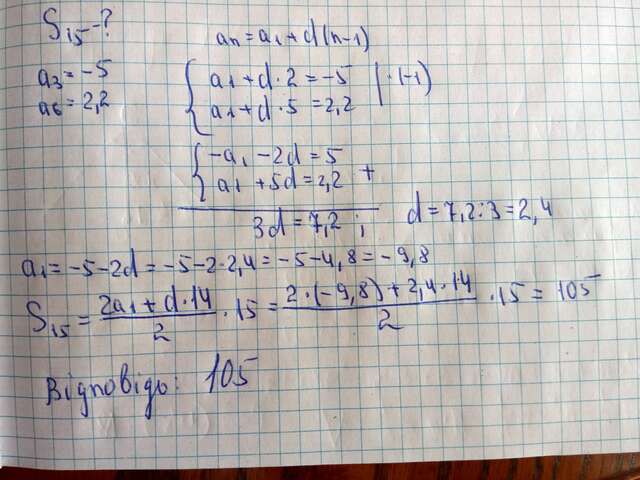 S₁₅-?
an=a₁+d(n-1)
a₃=-5
a₆=2,2
{a₁+d·2=-5 |·(-1)
a₁+d·5=2,2
{-a₁-2d=5
a₁+5d=2,2 +
3d=7,2; d=7,2:3=2,4
a₁=-5-2d=-5-2·2,4=-5-4,8=-9,8
S₁₅=(2a₁+d·14)/2·15=(2·(-9,8)+2,4·14)/2·15=105
Відповідь: 105